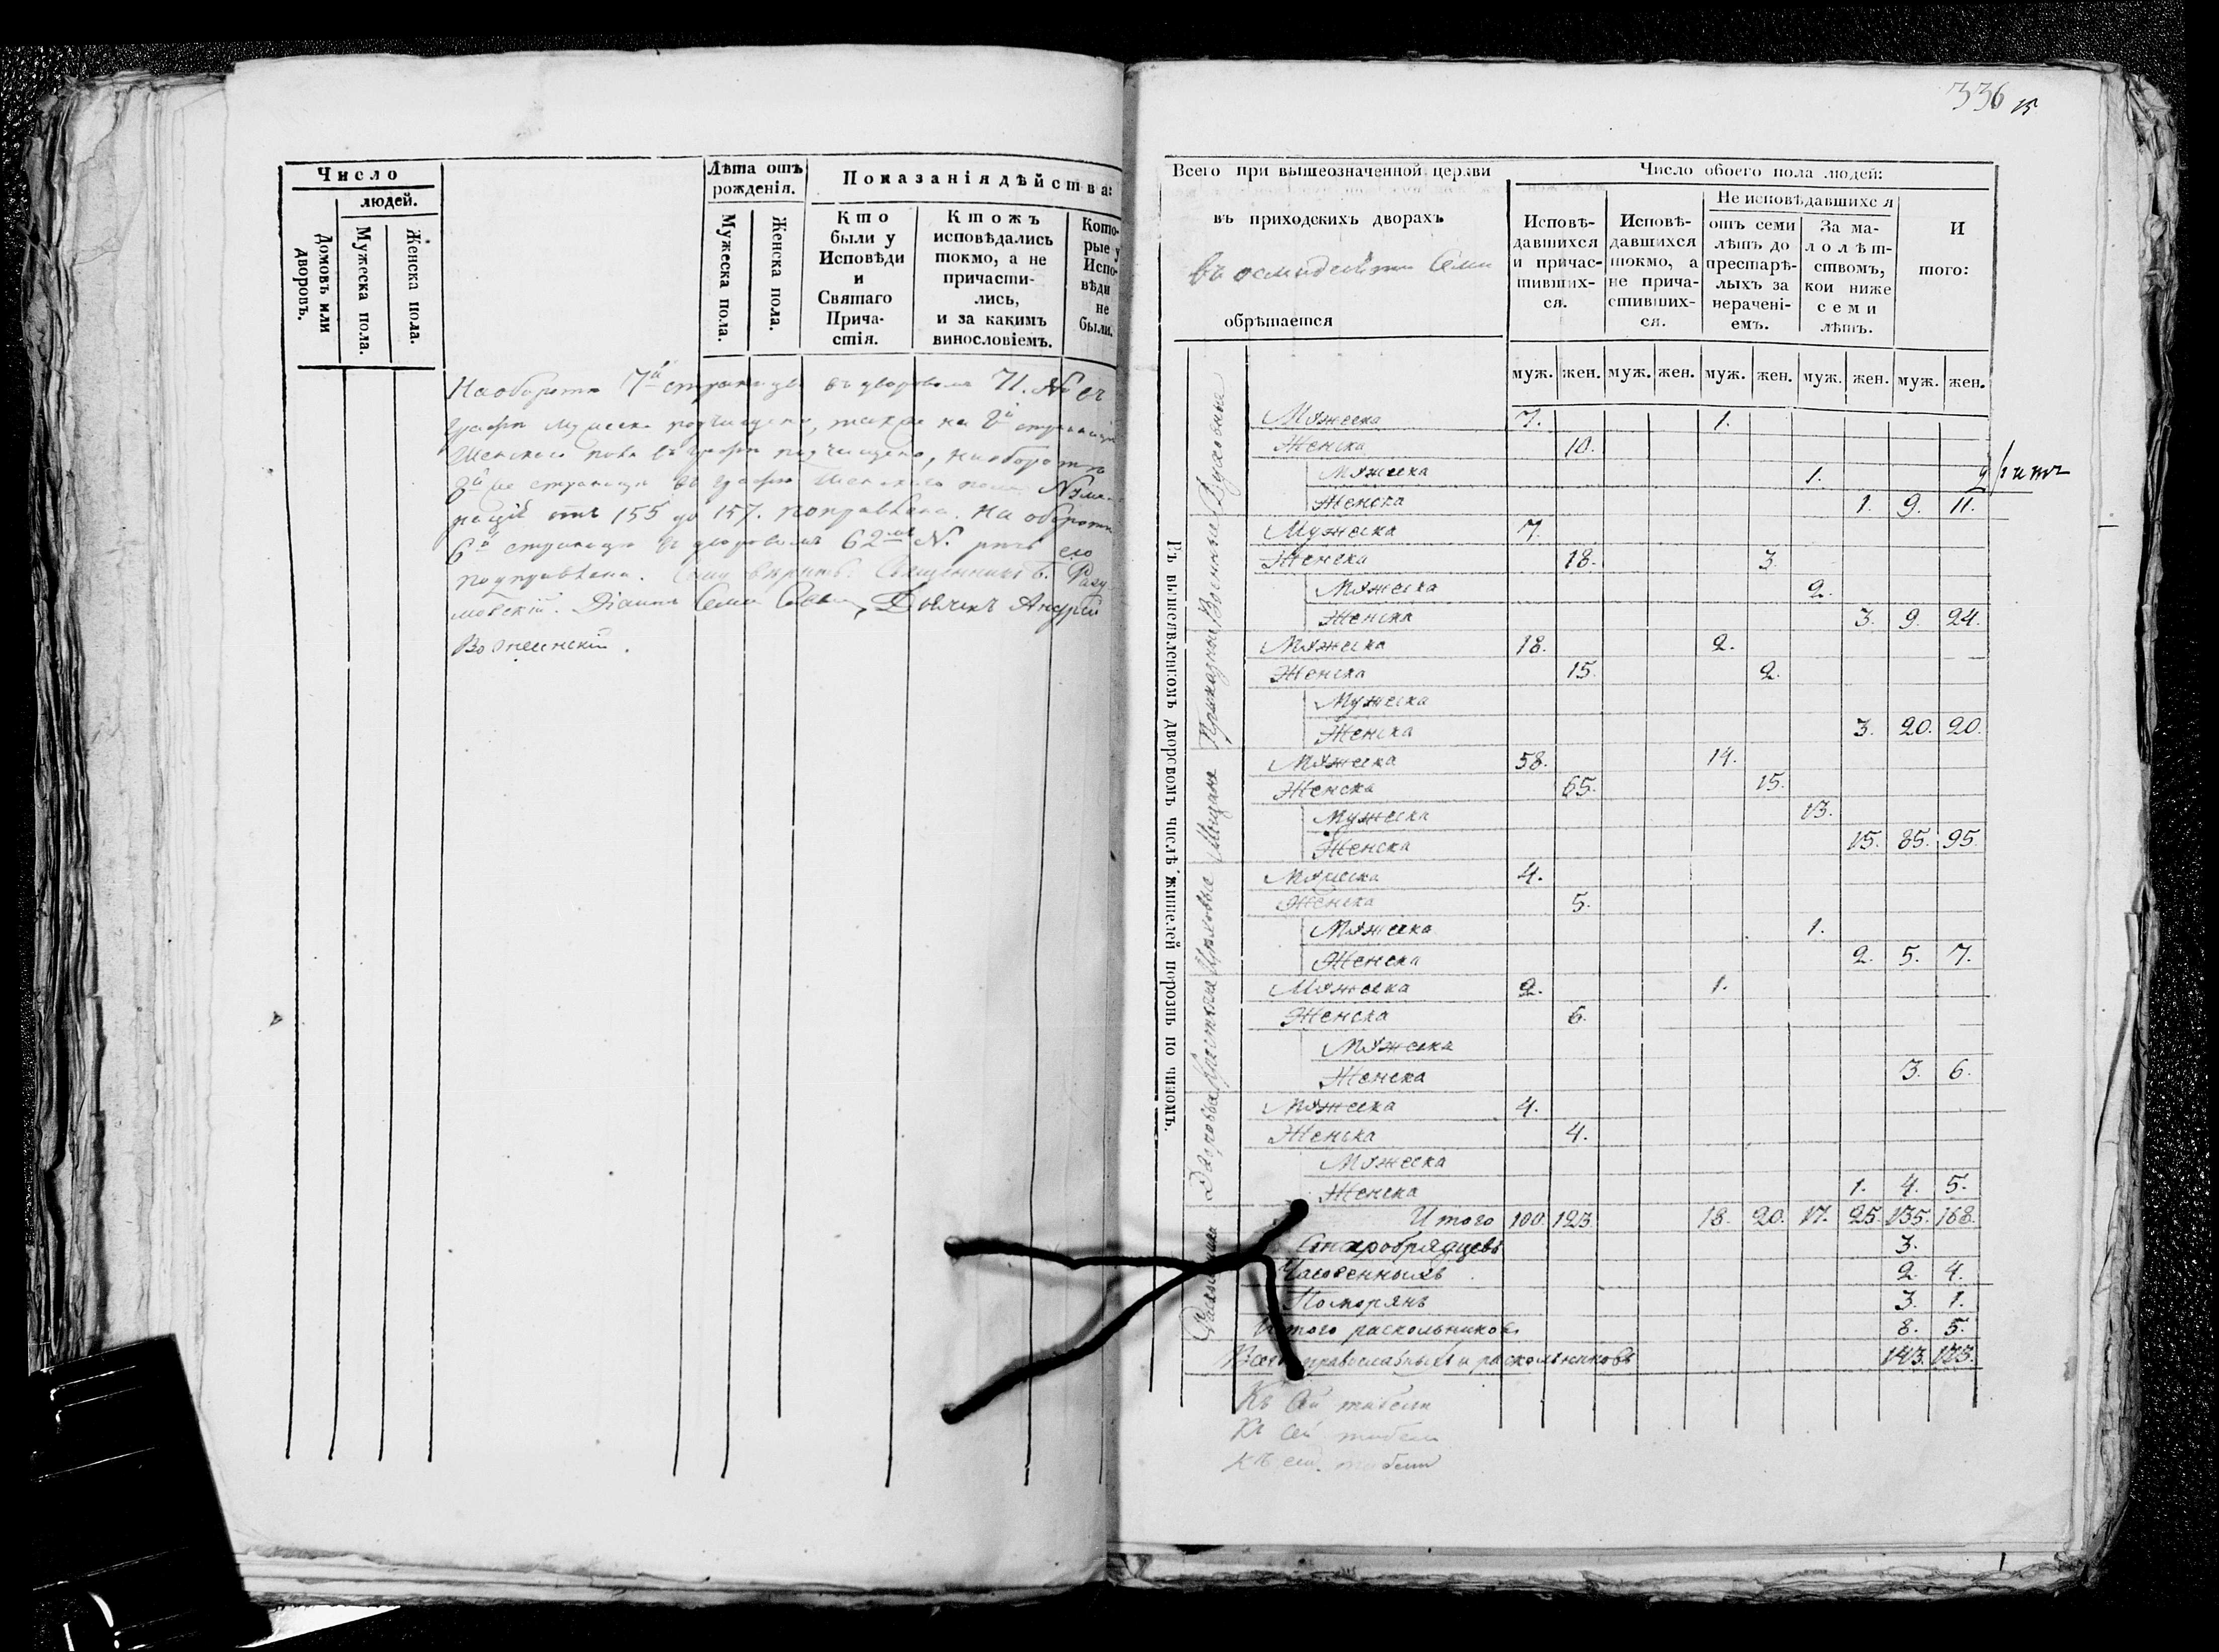 Число
людей.
Домовъ или дворовъ.
Мужеска пола.
Женска пола.
Лѣта отъ рожденія.
Мужеска пола.
Женска пола.
Показанія дѣйства:
Кто были у Исповѣди и Святаго Причастія.
Ктожъ исповѣдались токмо, а не причастились, и за какимъ винословіемъ.
Которые у Исповѣди не были.
На оборотѣ 7й страницы въ дворовомъ 71. № въ
графѣ мужеска подчищено, также на 8й страницѣ
Женскаго пола въ графѣ подчищено, на оборотѣ
8й же страницы въ графѣ Женскаго пола
отъ 155 до 157. поправлена. На оборотѣ
6й страницы въ дворовомъ 62мъ №.
подправлена. Священникъ Б. Разу-
мовскій. Діаконъ Дьячекъ Андрей
336 15
Всего при вышеозначенной церкви
въ приходскихъ дворахъ
въ осмидесяти семи
обрѣтается
Число обоего пола людей:
Исповѣдавшихся и причастившихся.
Исповѣдавшихся токмо, а не причастившихся.
Не исповѣдавшихся
отъ семи лѣтъ до престарѣлыхъ за нераченіемъ.
За малолѣтствомъ, кои ниже семи лѣтъ.
И того:
муж. жен. муж. жен. муж. жен. муж. жен. муж. жен.
Въ вышеявленномъ дворовомъ числѣ жителей порознь по чиномъ.
Духовные
Мужеска 7. 1.
Женска 10.
Мужеска 1.
Женска 1. 9. 11.
Военные
Мужеска 7.
Женска 18. 3.
Мужеска 2.
Женска 3. 9. 24.
Приказные
Мужеска 18. 2.
Женска 15. 2.
Мужеска
Женска 3. 20. 20.
Мещане
Мужеска 58. 14.
Женска 65. 15.
Мужеска 13.
Женска 15. 85. 95.
Цеховые
Мужеска 4.
Женска 5.
Мужеска 1.
Женска 2. 5. 7.
Крестьяне
Мужеска 2. 1.
Женска 6.
Мужеска
Женска 3. 6.
Дворовые
Мужеска 4.
Женска 4.
Мужеска
Женска 1. 4. 5.
Итого 100. 123. 18. 20. 17. 25. 135. 168.
Раскольники
Старобрядцевъ 3.
Часовенныхъ 2. 4.
Поморянъ 3. 1.
Итого раскольниковъ 8. 5.
Всего православныхъ и раскольниковъ 143. 173.
Къ сей табели
Къ сей табели
Къ сей табели